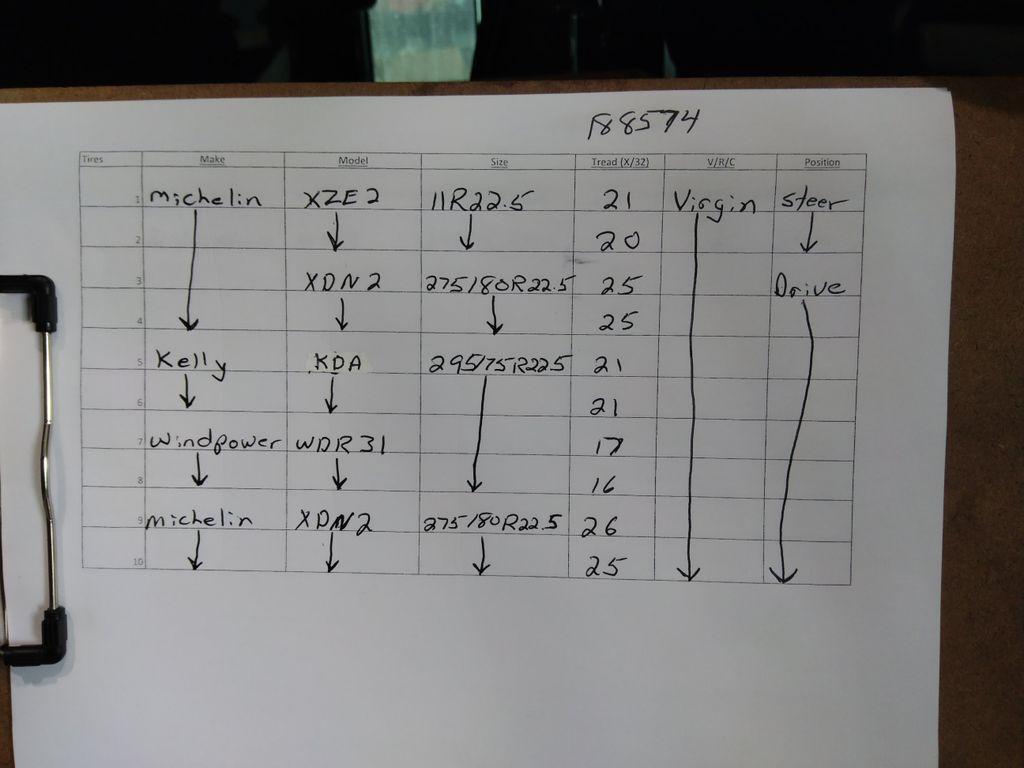 188574
Tires Make Model Size Tread (X/32) V/R/C Position
1 Michelin XZE2 11R22.5 21 Virgin Steer
2 ↓ ↓ 20 ↓
3 XDN2 275/80R22.5 25 Drive
4 ↓ ↓ ↓ 25
5 Kelly KDA 295/75R22.5 21
6 ↓ ↓ 21
7 Windpower WDR31 17
8 ↓ ↓ ↓ 16
9 Michelin XDN2 275/80R22.5 26
10 ↓ ↓ ↓ 25 ↓ ↓